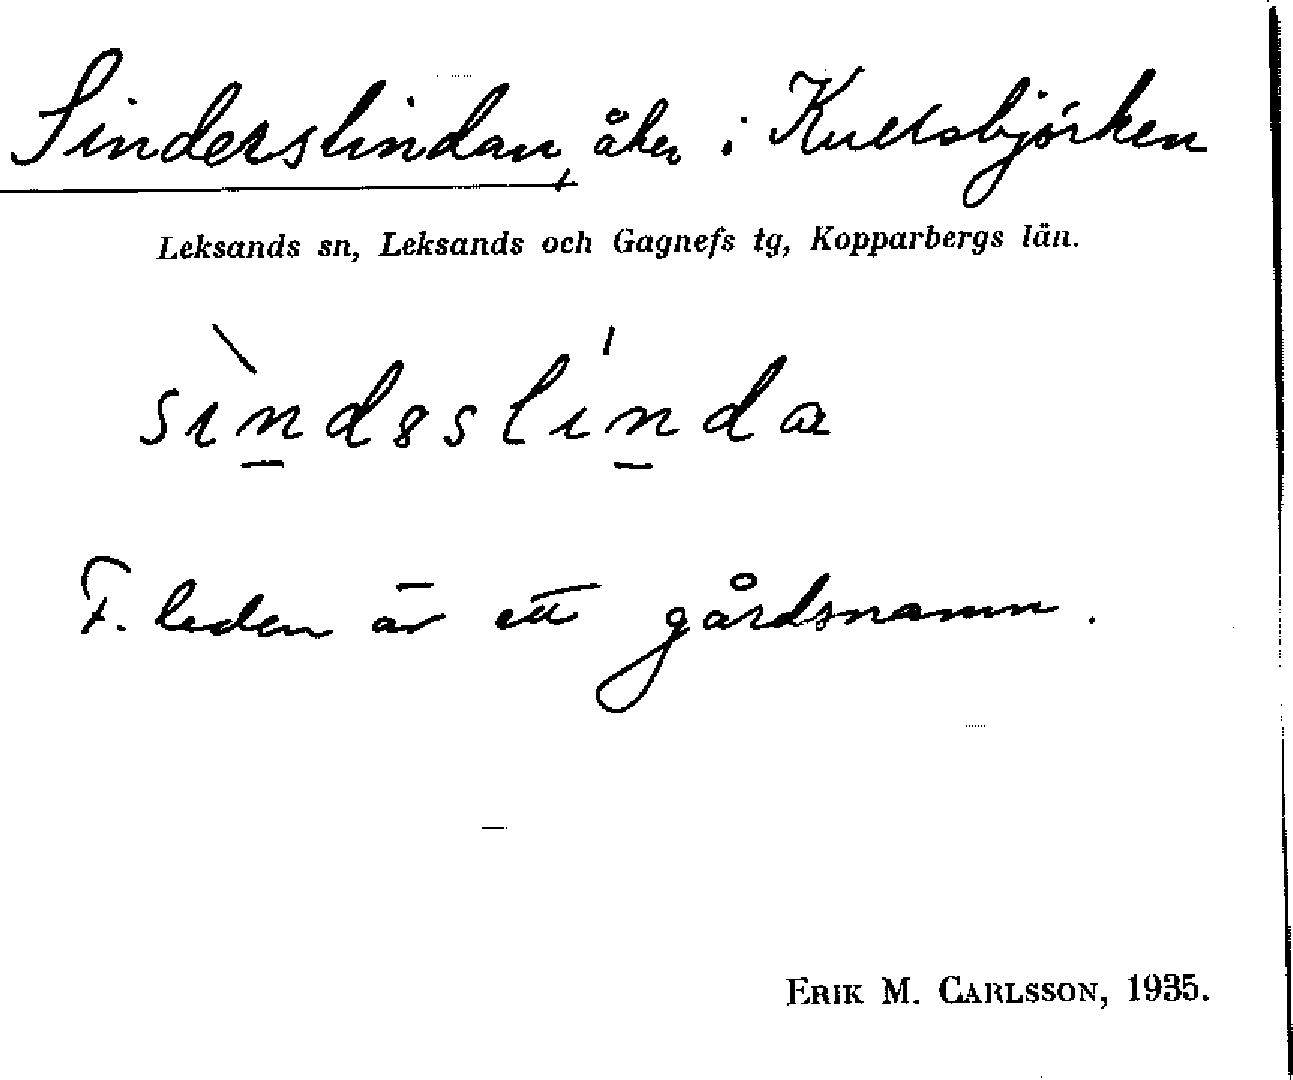 Sinderslindan, åker i Kullsbjörken
Leksands sn, Leksands och Gagnefs tg, Kopparbergs län.
F. leden är ett gårdsnamn.
ERIK M. CARLSSON, 1935.